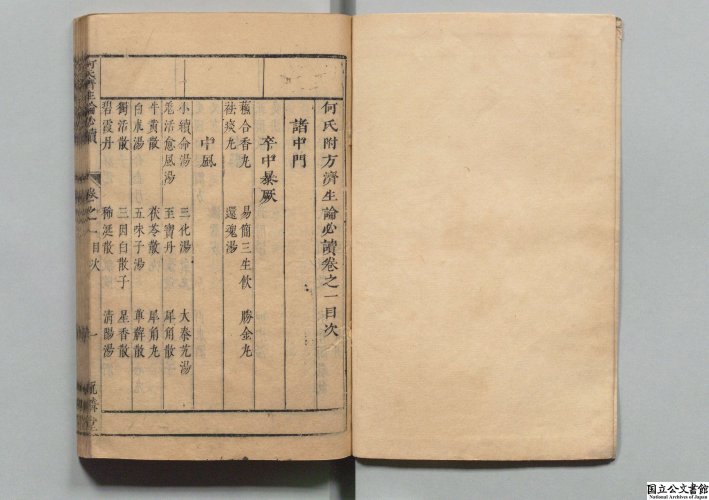 何氏附方濟生論必讀卷之一目次
諸中門
卒中暴厥
蘓合香丸 易簡三生飲 勝金丸
祛痰丸 還魂湯
中風
小續命湯 三化湯 大秦艽湯
羗活愈風湯 至寶丹 犀角散
牛黃散 茯苓散 犀角丸
白朮湯 五味子湯 萆薢散
獨活散 三因白散子 星香散
碧霞丹 稀涎散 清陽湯
何氏濟生論必讀 卷之一目次 一
国立公文書館
National Archives of Japan